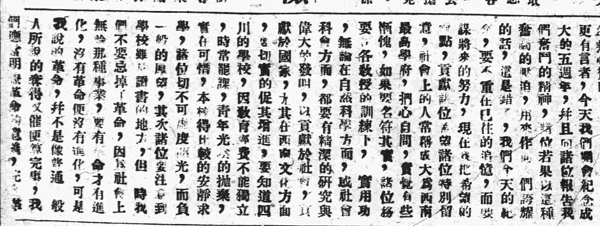 更有言者，今天我們開會紀念成
大的五週年，并且同諸位報告我
們奮鬥的精神，諸位若果以這種
奮鬥的
的話，還是錯了，我們今天的紀
念，要不重在已往的追憶，而要
謀將來的努力，現在我把希望的
點，貢獻諸位，希望諸位特別留
意，社會上的人常稱成大爲西南
最高學府，捫心自問，實覺有些
慚愧，如果要名符其實，諸位務
要在各教授的訓練下，實用功
，無論在自然科學方面，或社會
科會方面，都要有精深的研究與
偉大的發明，以貢獻於社會，貢
獻於國家，尤其在西南文化方面
，要切實的促其增進，要知道四
川的學校，因敎育經費不能獨立
，時常罷課，青年光陰的拋棄，
實在可惜，本校得比較的安靜求
學，諸位切不可虛度光陰，而負
一般的厚望，其次諸位要注意到
學校雖是讀書的地方，但一時我
們不要忘掉了革命，因爲社會上
無論那種事業，要有革命才有進
化，沒有革命便沒有進化，可是
我說的革命，并不是像普通一般
人所
們應當明瞭革命的意義，